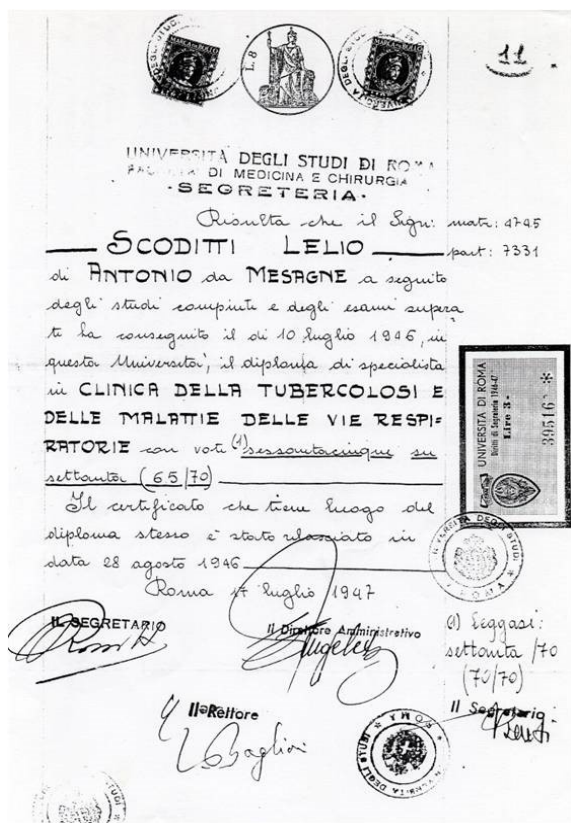 11
L. 8
MARCA DA BOLLO
UNIVERSITÀ DEGLI STUDI DI ROMA
FACOLTÀ DI MEDICINA E CHIRURGIA
·SEGRETERIA·
Risulta che il Sign: matr: 4745
SCODITTI LELIO part: 7331
di ANTONIO da MESAGNE a seguito
degli studi compiuti e degli esami supera
ti ha conseguito il dì 10 luglio 1946, in
questa Università, il diploma di specialista
in CLINICA DELLA TUBERCOLOSI E
DELLE MALATTIE DELLE VIE RESPI=
RATORIE con voti (1) sessantacinque su
settanta (65/70)
Il certificato che tiene luogo del
diploma stesso è stato rilasciato in
data 28 agosto 1946
Roma 17 luglio 1947
UNIVERSITÀ DI ROMA
Diritti di Segreteria 1946-47
Lire 3-
39516
IL SEGRETARIO
Il Direttore Amministrativo
(1) Leggasi:
settanta /70
(70/70)
Il Rettore
Il Segretario
UNIVERSITÀ DEGLI STUDI * ROMA *